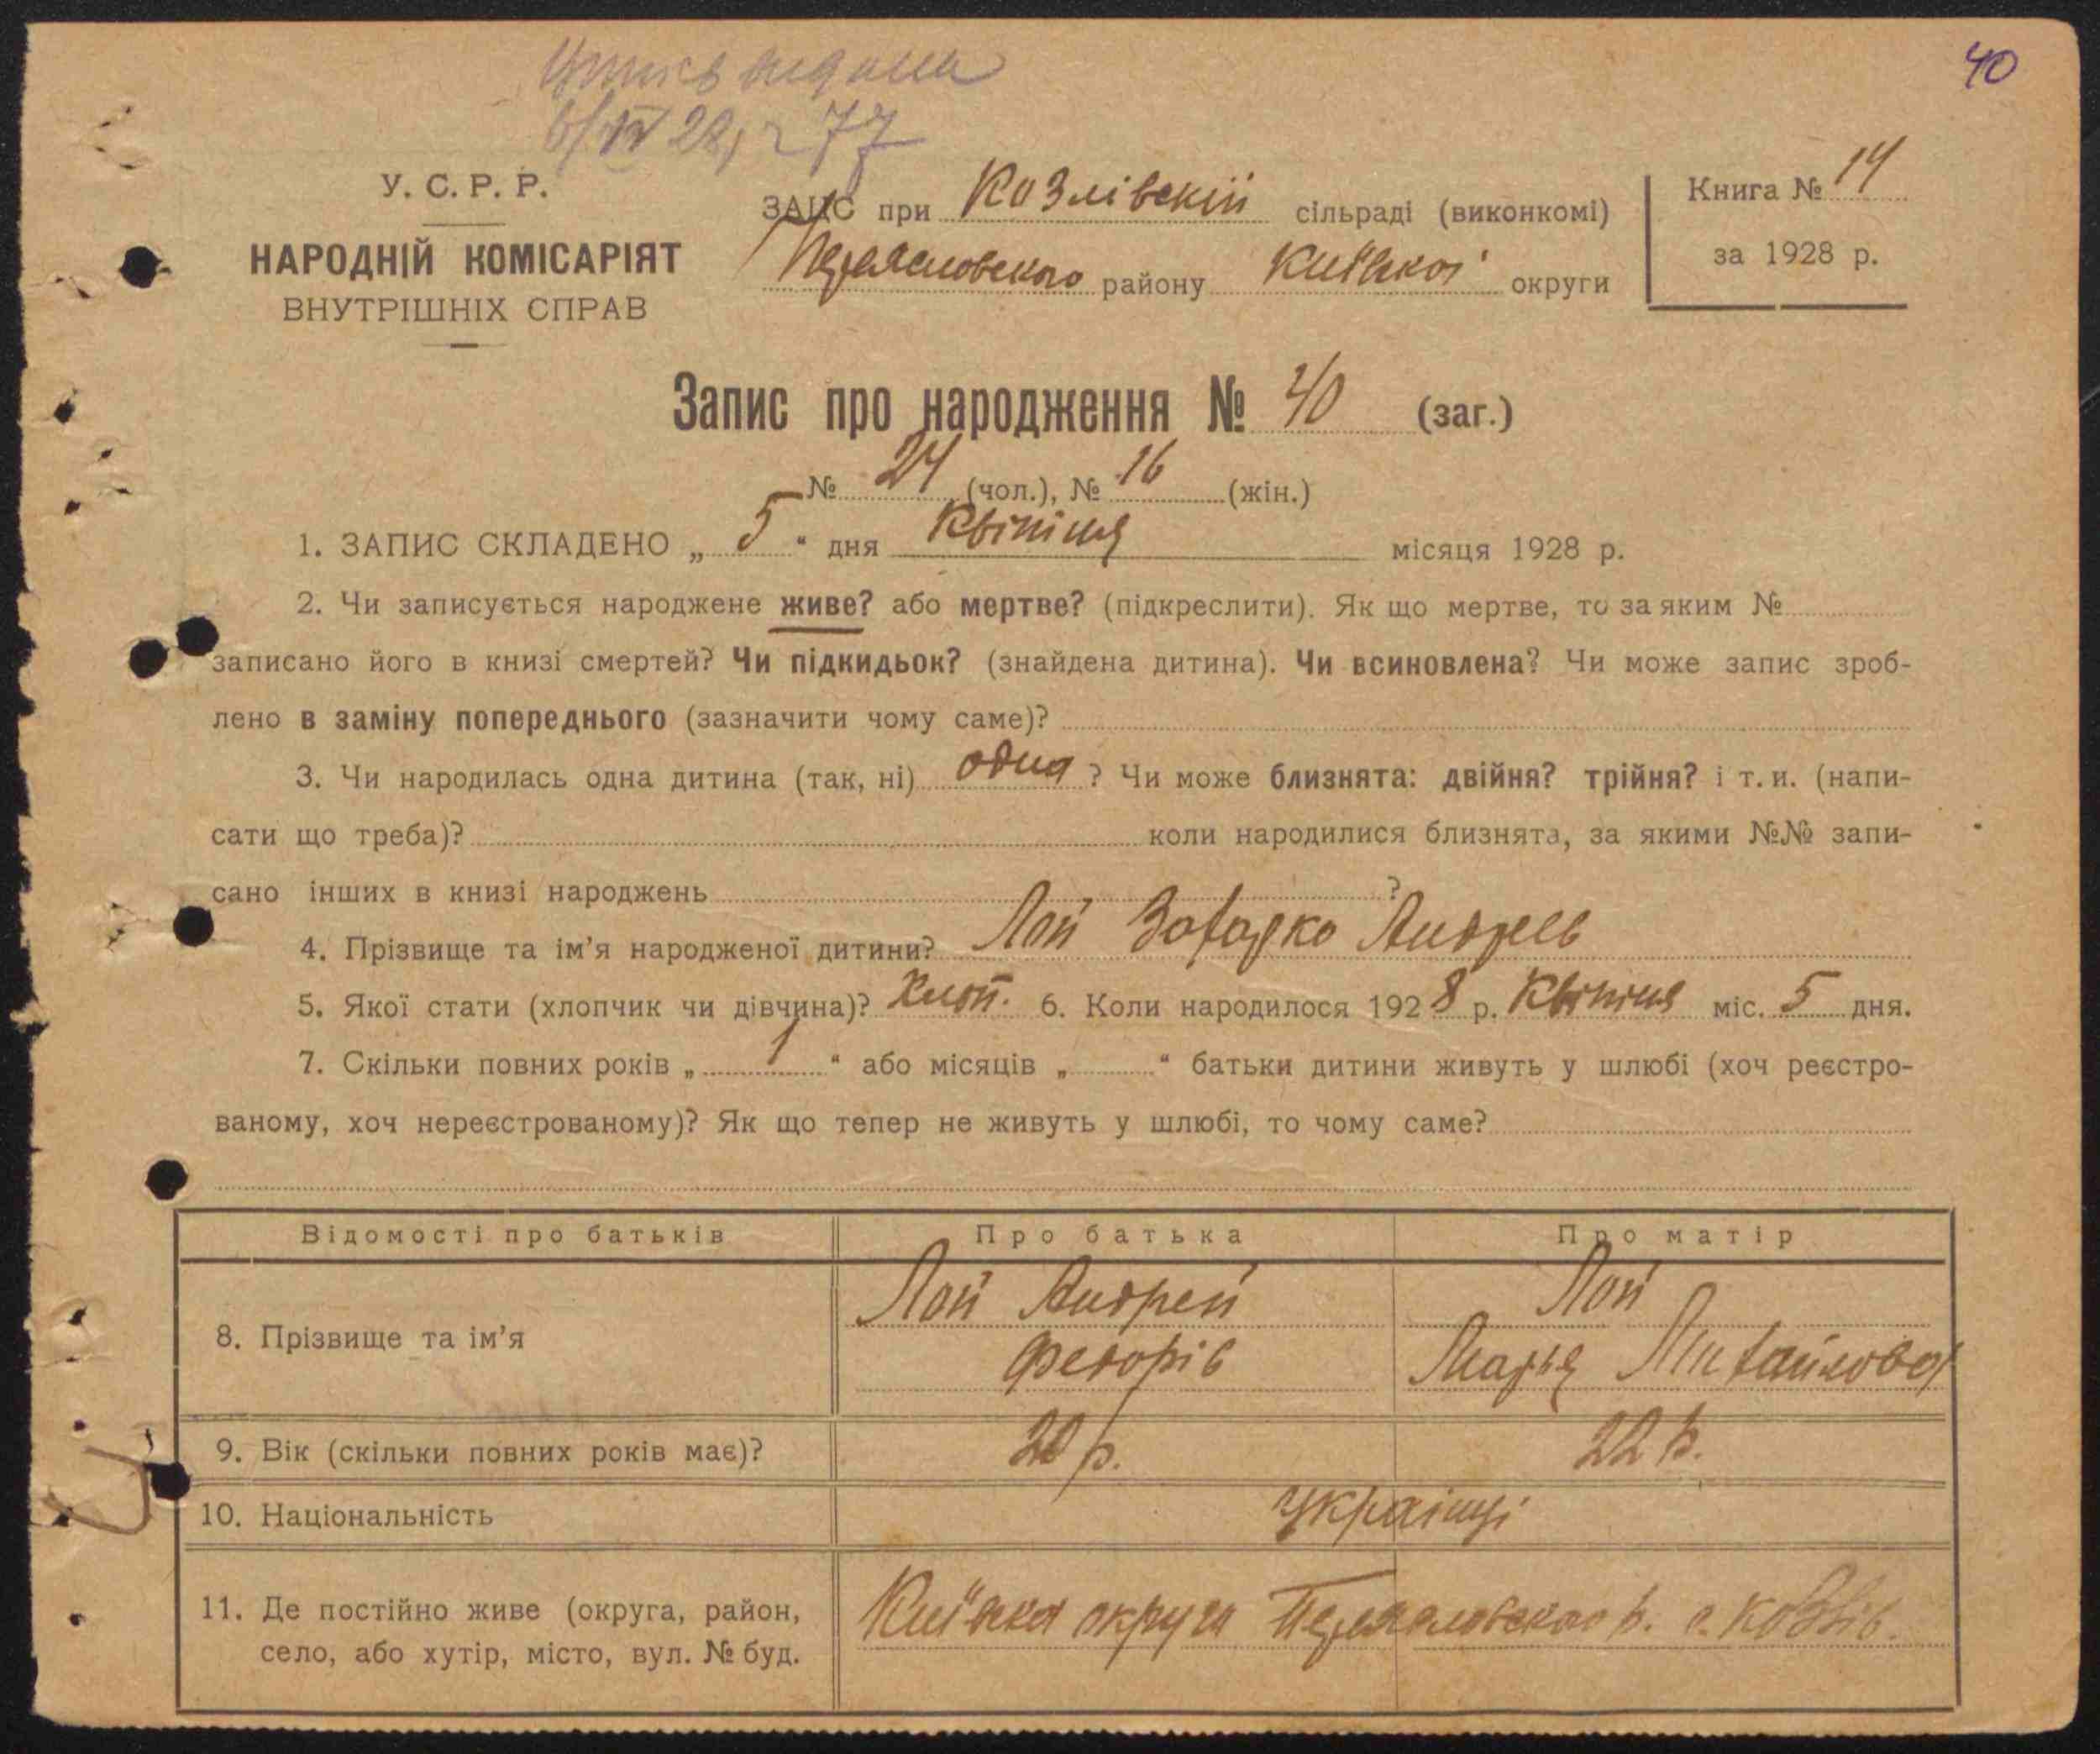 40
У. С. Р. Р.
НАРОДНІЙ КОМІСАРІЯТ
ВНУТРІШНІХ СПРАВ
ЗАЦС при Козлівскій сільраді (виконкомі)
Переясловского району Київскої округи
Книга № 14
за 1928 р.
Запис про народження № 40 (заг.)
№ 24 (чол.), № 16 (жін.)
1. ЗАПИС СКЛАДЕНО „ 5 “ дня Квітня місяця 1928 р.
2. Чи записується народжене живе? або мертве? (підкреслити). Як що мертве, то за яким №
записано його в книзі смертей? Чи підкидьок? (знайдена дитина). Чи всиновлена? Чи може запис зроб-
лено в заміну попереднього (зазначити чому саме)?
3. Чи народилась одна дитина (так, ні) одна ? Чи може близнята: двійня? трійня? і т. и. (напи-
сати що треба)? коли народилися близнята, за якими №№ запи-
сано інших в книзі народжень ?
4. Прізвище та ім’я народженої дитини? Лой Андреєв
5. Якої стати (хлопчик чи дівчина)? Хлоп. 6. Коли народилося 1928 р. Квітня міс. 5 дня.
7. Скільки повних років „ 1 “ або місяців „ “ батьки дитини живуть у шлюбі (хоч реєстро-
ваному, хоч нереєстрованому)? Як що тепер не живуть у шлюбі, то чому саме?
Відомості про батьків Про батька Про матір
8. Прізвище та ім’я Лой Андрей Лой
Федорів Марья Михайлова
9. Вік (скільки повних років має)? 20 р. 22 р.
10. Національність українці
11. Де постійно живе (округа, район, Київска округа Переясловского р. с. Козлів.
село, або хутір, місто, вул. № буд.